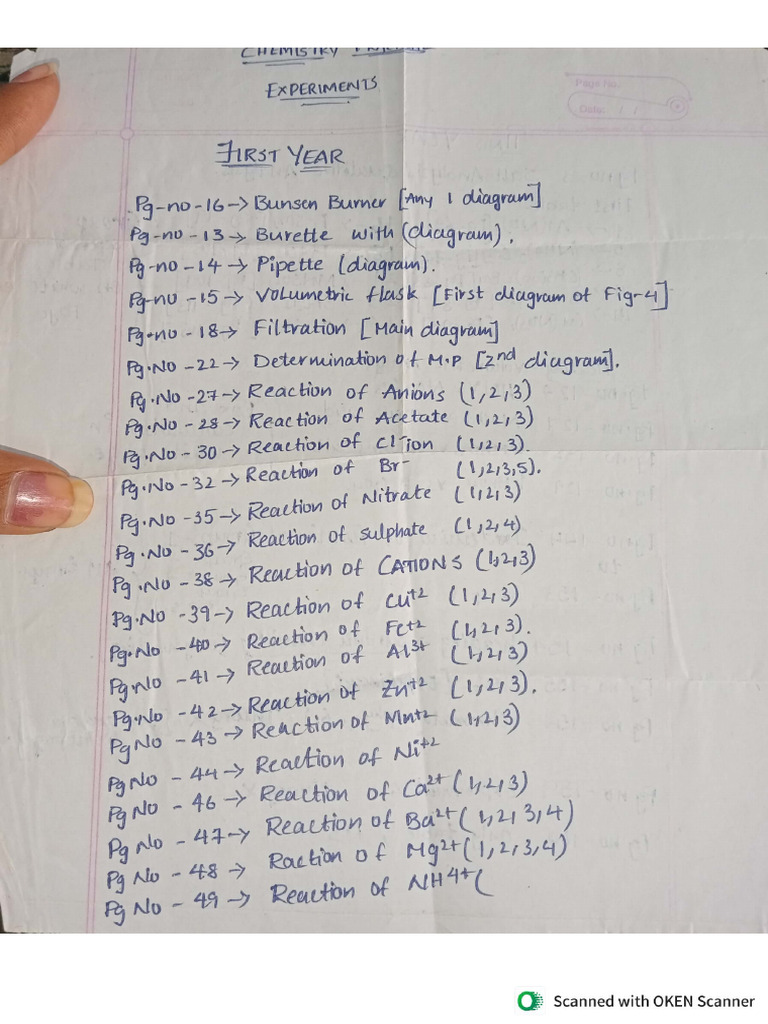 CHEMISTRY
EXPERIMENTS
Page No.
Date: / /
FIRST YEAR
Pg-no-16→ Bunsen Burner [Any 1 diagram]
Pg-no-13→ Burette with (diagram).
Pg-no-14→ Pipette (diagram).
Pg-no-15→ Volumetric flask [First diagram of Fig-4]
Pg-no-18→ Filtration [Main diagram]
Pg.No-22→ Determination of M.P [2nd diagram].
Pg.No-27→ Reaction of Anions (1,2,3)
Pg.No-28→ Reaction of Acetate (1,2,3)
Pg.No-30→ Reaction of Cl⁻ion (1,2,3).
Pg.No-32→ Reaction of Br⁻ (1,2,3,5).
Pg.No-35→ Reaction of Nitrate (1,2,3)
Pg.No-36→ Reaction of sulphate (1,2,4)
Pg.No-38→ Reaction of CATIONS (1,2,3)
Pg.No-39→ Reaction of Cu+2 (1,2,3)
Pg.No-40→ Reaction of Fe+2 (1,2,3).
Pg No-41→ Reaction of Al3+ (1,2,3)
Pg.No-42→ Reaction of Zn+2 (1,2,3).
Pg No-43→ Reaction of Mn+2 (1,2,3)
Pg No-44→ Reaction of Ni+2
Pg No-46→ Reaction of Ca2+ (1,2,3)
Pg No-47→ Reaction of Ba2+ (1,2,3,4)
Pg No-48→ Raction of Mg2+ (1,2,3,4)
Pg No-49→ Reaction of NH4+ (
Scanned with OKEN Scanner